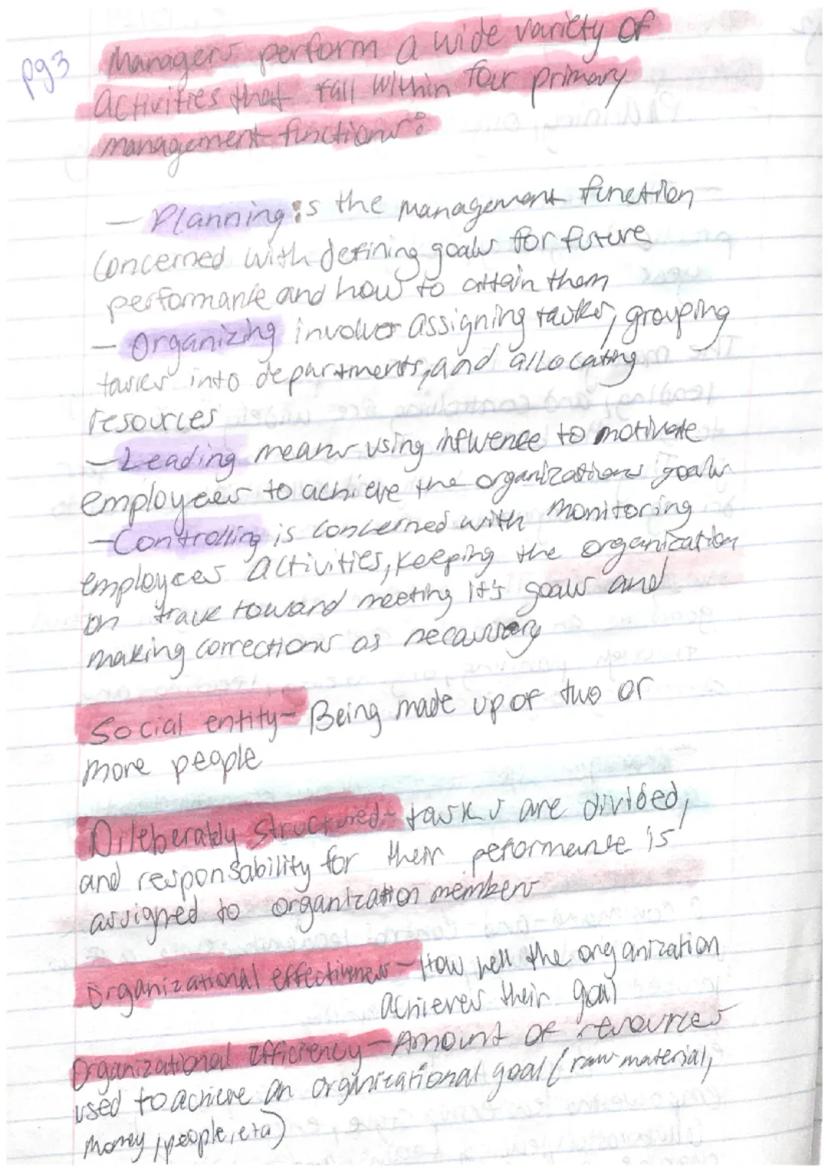 pg3
Managers perform a wide variety of
activities that fall within four primary
management functions:
- Planning is the management function
concerned with defining goals for future
performance and how to attain them
- Organizing involves assigning tasks, grouping
tasks into departments, and allocating
resources
- Leading means using influence to motivate
employees to achieve the organizations goals
- Controlling is concerned with monitoring
employees activities, keeping the organization
on track toward meeting it's goals and
making corrections as necessary
Social entity- Being made up of two or
more people
Dileberably structured- tasks are divided,
and responsability for their peformance is
assigned to organization members
Organizational effectiveness- How well the organization
achieves their goal
Organizational Efficiency- Amount of resources
used to achieve an organizational goal (raw material,
money, people, etc)